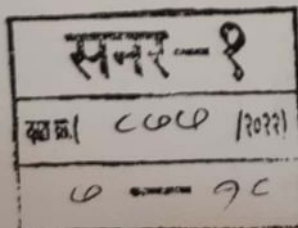 सनर-१
दस्त क्र.( ८७७ /२०२२)
७ — १८